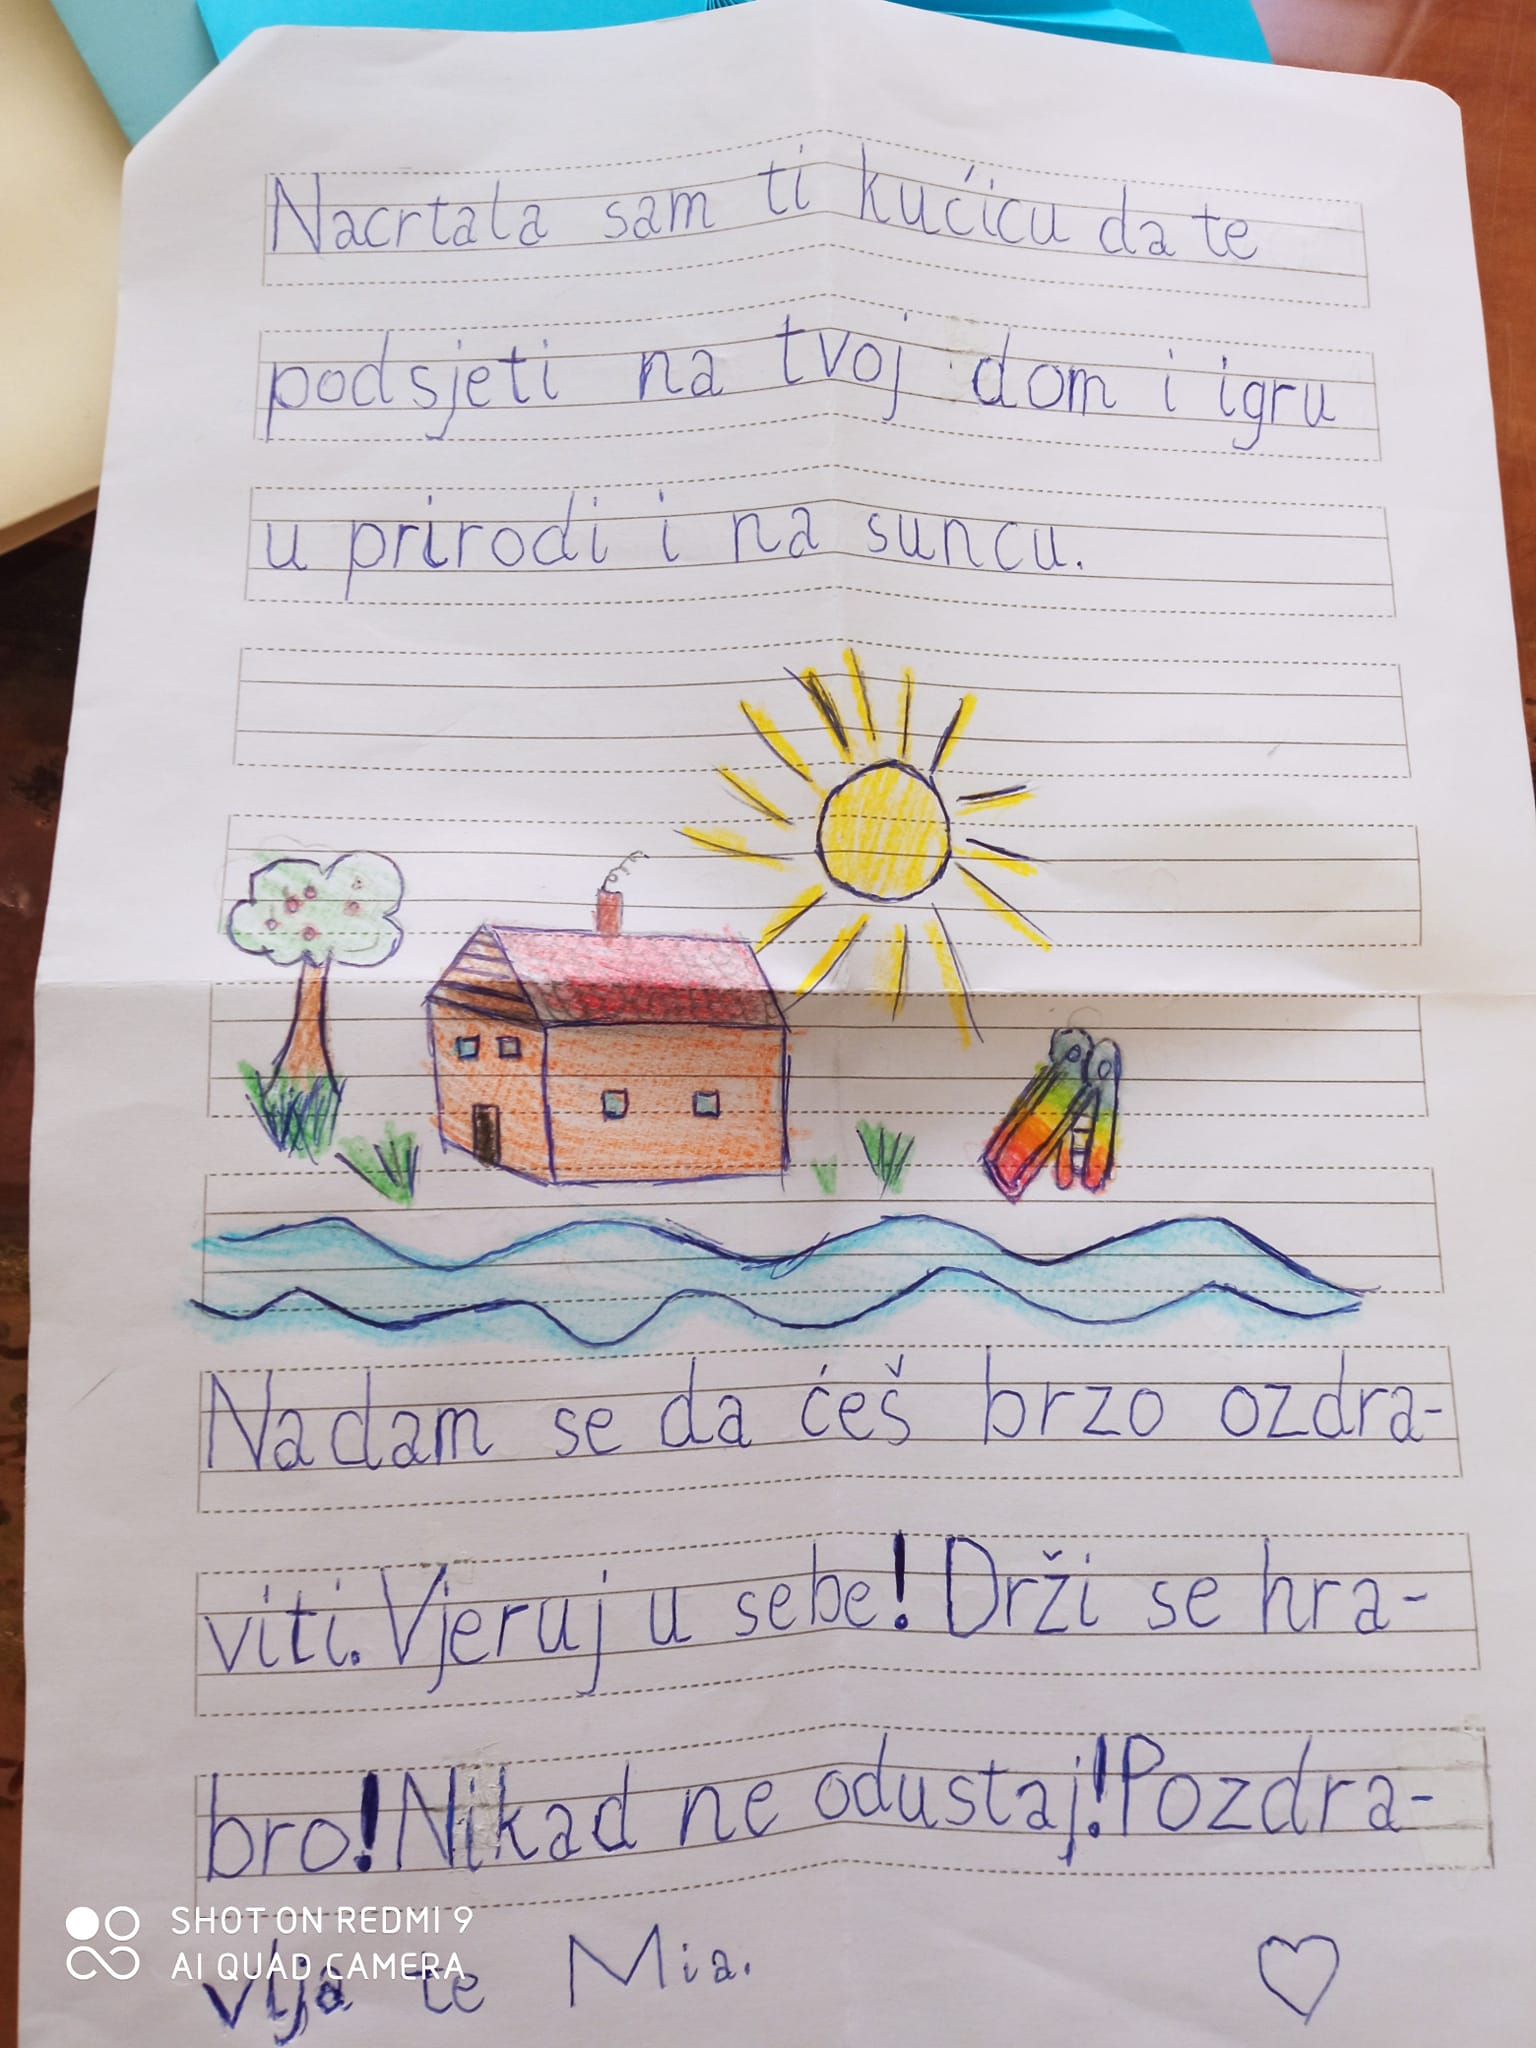 Nacrtala sam ti kućicu da te
podsjeti na tvoj dom i igru
u prirodi i na suncu.
Nadam se da ćeš brzo ozdra-
viti. Vjeruj u sebe! Drži se hra-
bro! Nikad ne odustaj! Pozdra-
vlja te Mia.
SHOT ON REDMI 9
AI QUAD CAMERA